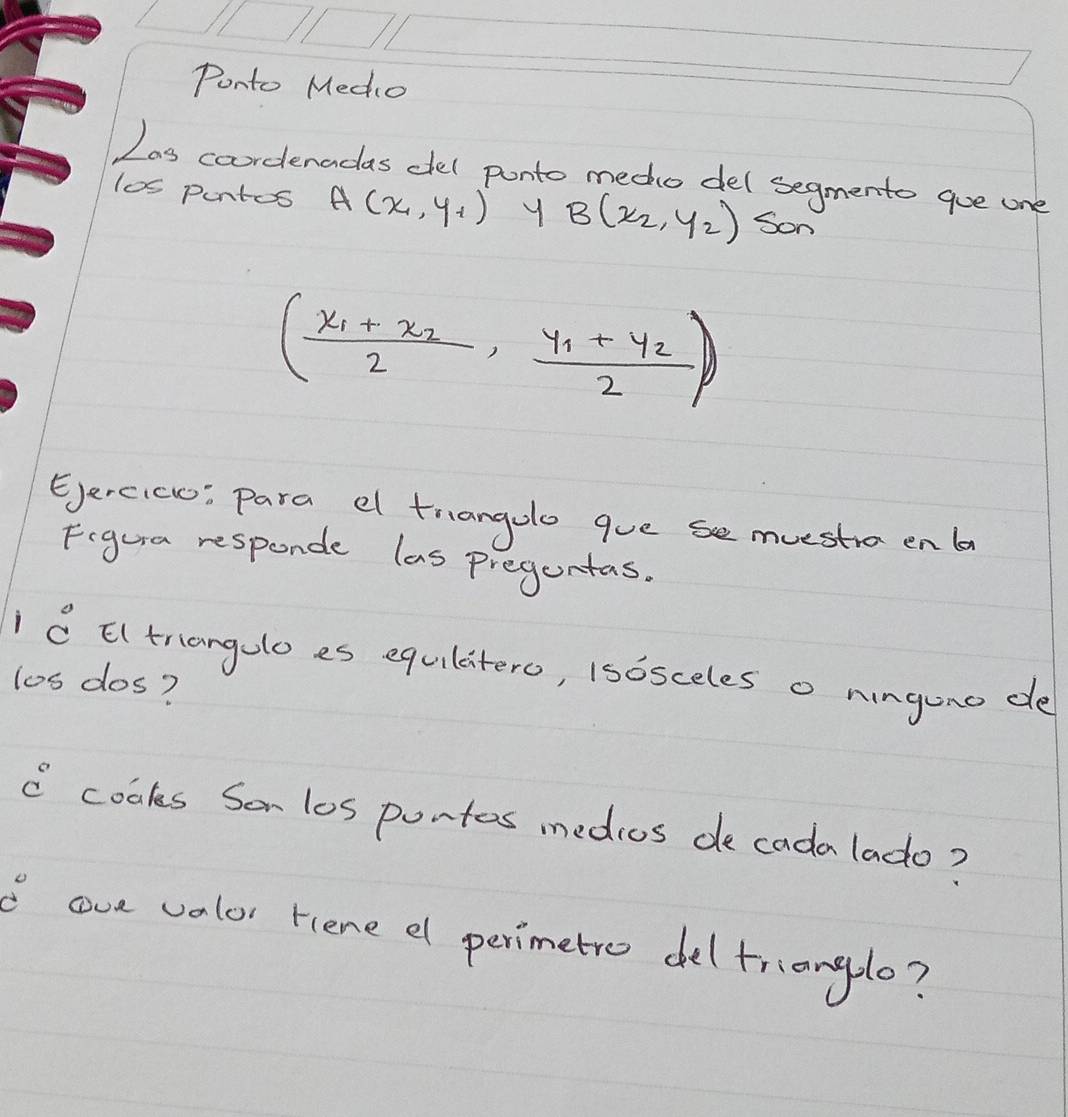 Punto Medio
Las coordenadas del punto medio del segmento que une
los puntos A (x₁, y₁) y B(x₂, y₂) Son
(x₁ + x₂ / 2, y₁ + y₂ / 2)
Ejercicio: para el triangulo que se muestra en la
Figura responde las preguntas.
1 ¿ El triangulo es equilátero, isósceles o ninguno de
los dos?
¿ cuáles Son los puntos medios de cada lado?
¿ Que valor tiene el perimetro del triangulo?